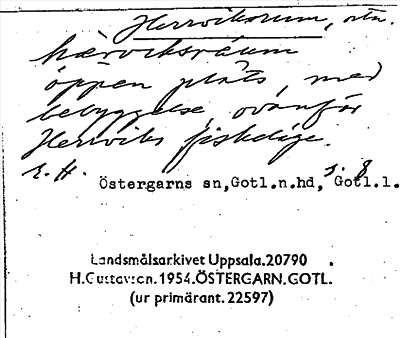 Herrviksrum, otn.
hærviksräum
öppen plats, med
bebyggelse ovanför
Herrviks fiskeläge.
E. H. s. 8
Östergarns sn,Gotl.n.hd, Gotl.l.
Landsmålsarkivet Uppsala.20790
H.Gustavson.1954.ÖSTERGARN.GOTL.
(ur primärant. 22597)